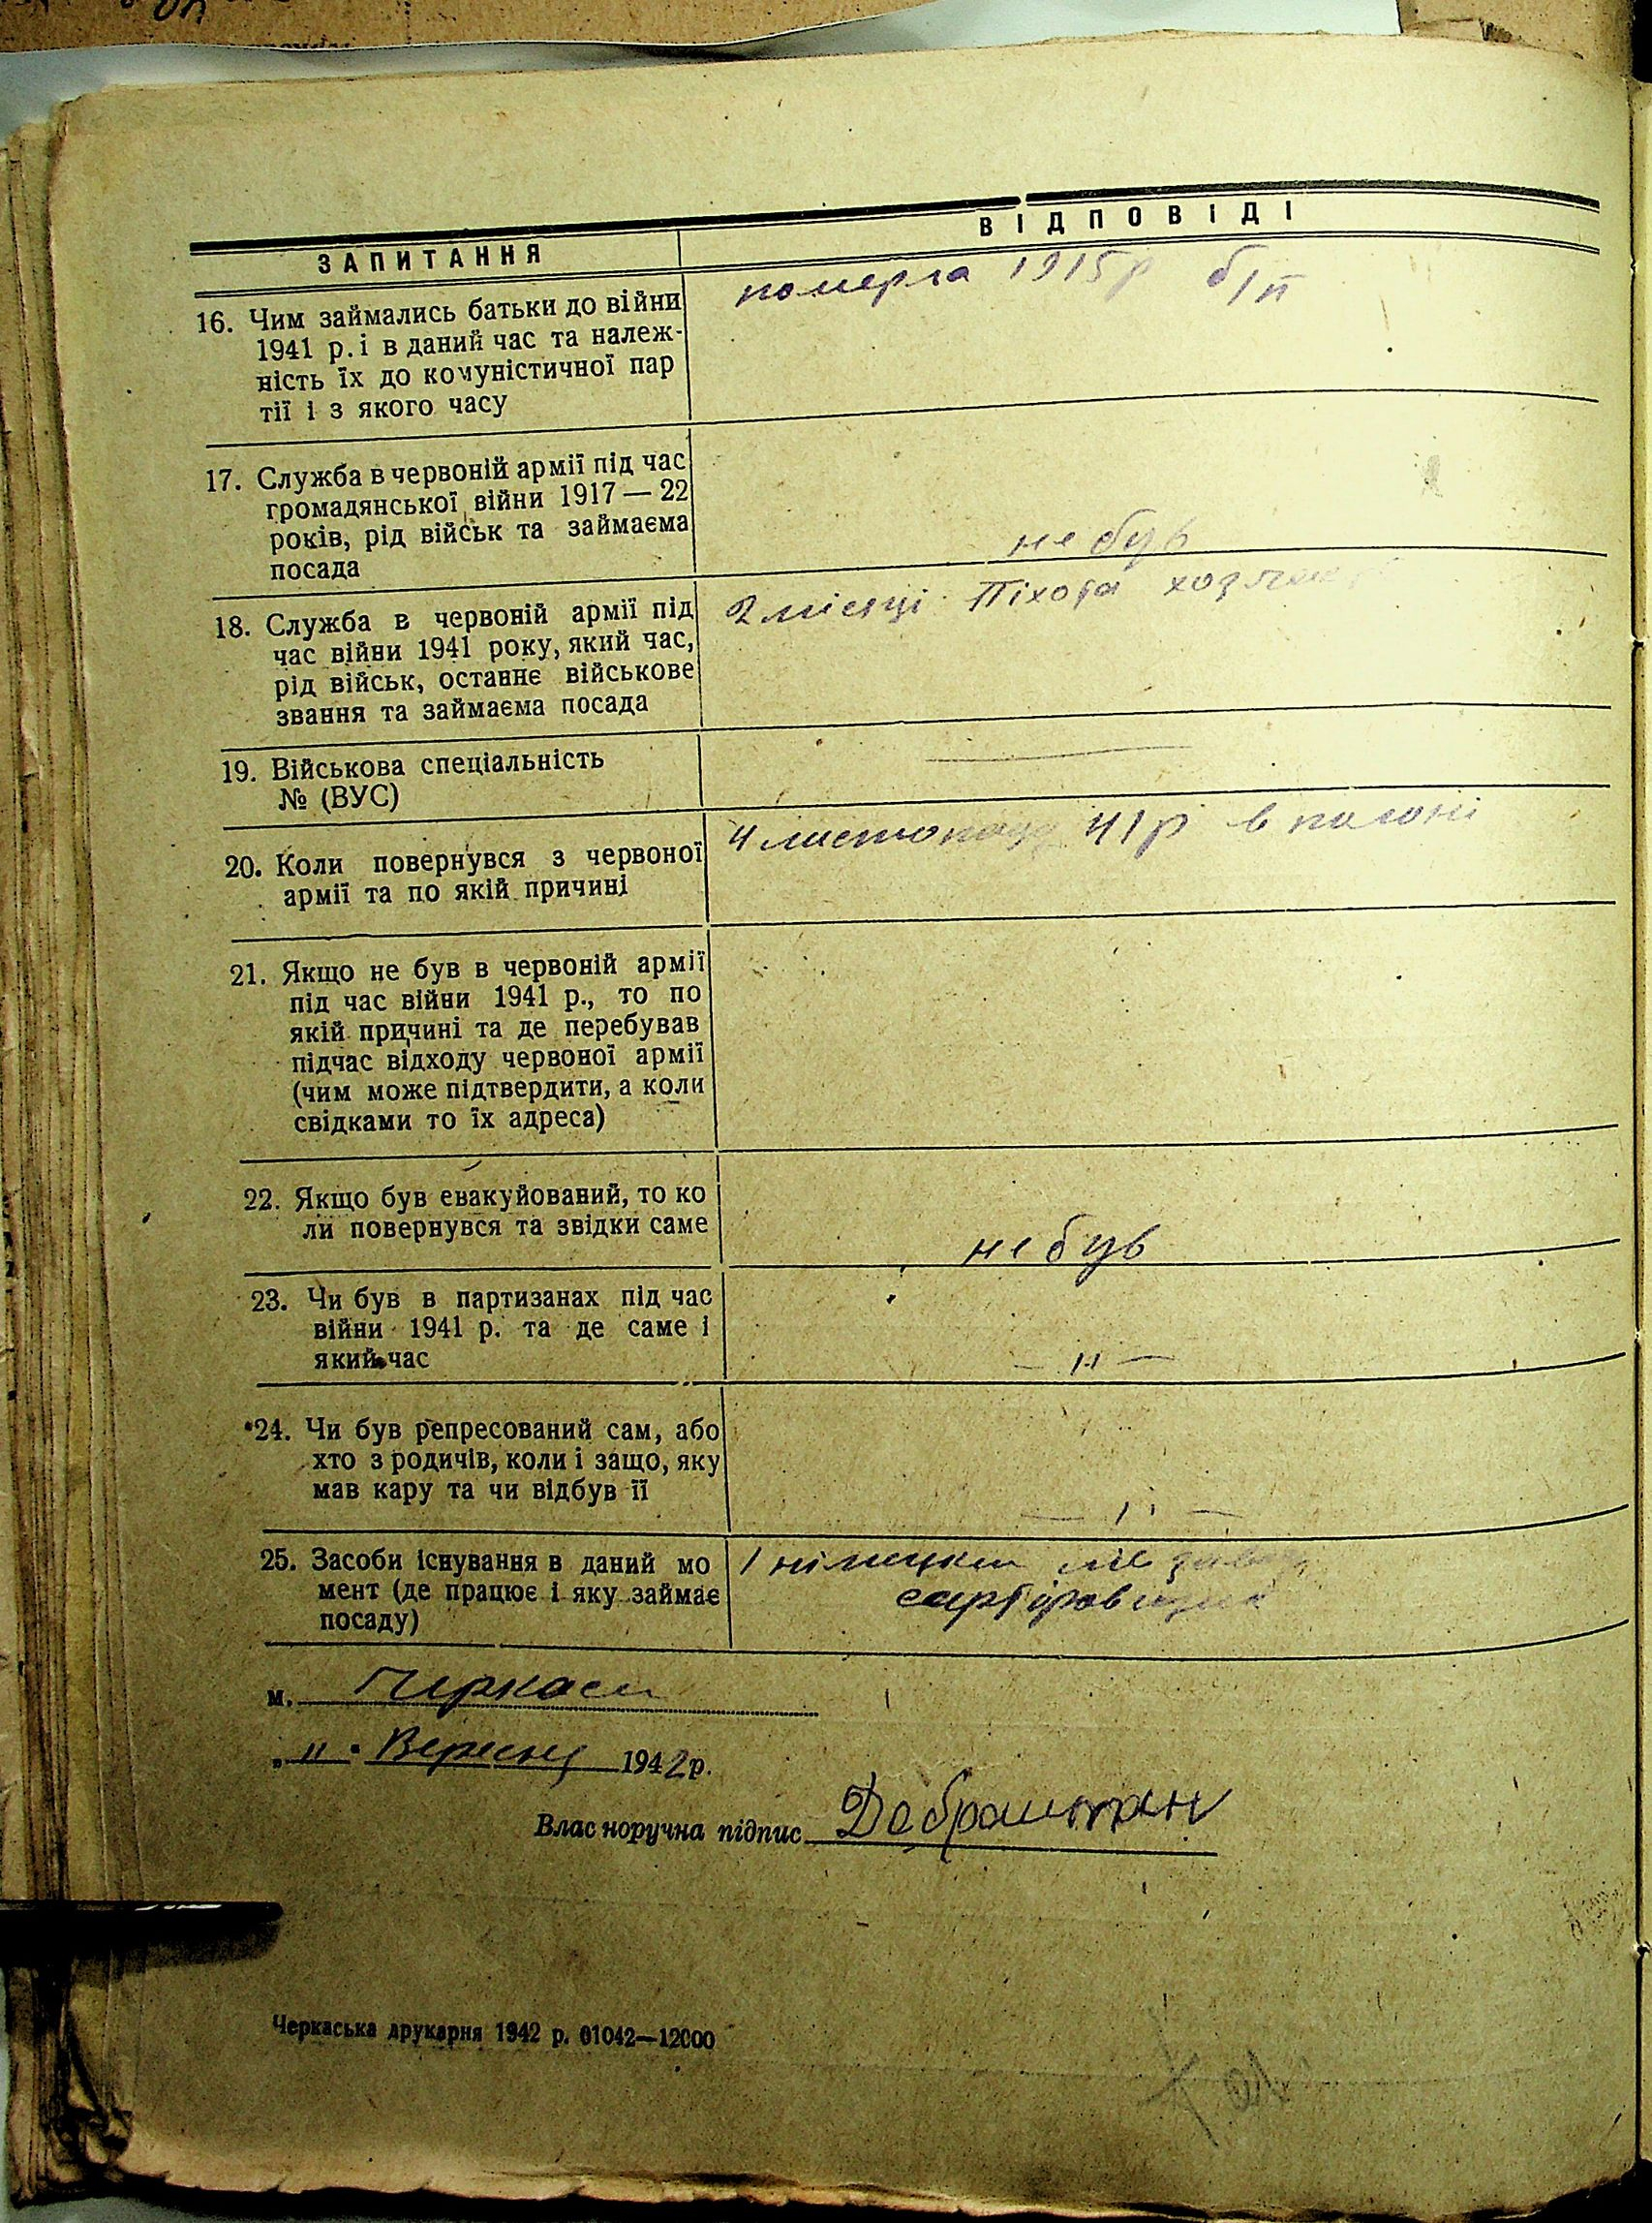 ЗАПИТАННЯ
ВІДПОВІДІ
16. Чим займались батьки до війни
1941 р. і в даний час та належ-
ність їх до комуністичної пар
тії і з якого часу
померла 1915р б/п
17. Служба в червоній армії під час
громадянської війни 1917 — 22
років, рід військ та займаєма
посада
не був
18. Служба в червоній армії під
час війни 1941 року, який час,
рід військ, останнє військове
звання та займаєма посада
2 місяці Піхота
19. Військова спеціальність
№ (ВУС)
20. Коли повернувся з червоної
армії та по якій причині
4 листопада 41р в полоні
21. Якщо не був в червоній армії
під час війни 1941 р., то по
якій причині та де перебував
підчас відходу червоної армії
(чим може підтвердити, а коли
свідками то їх адреса)
22. Якщо був евакуйований, то ко
ли повернувся та звідки саме
не був
23. Чи був в партизанах під час
війни 1941 р. та де саме і
який час
— 11 —
24. Чи був репресований сам, або
хто з родичів, коли і защо, яку
мав кару та чи відбув її
— 11 —
25. Засоби існування в даний мо
мент (де працює і яку займає
посаду)
м. Черкаси
„ 11 " Вересня 1942р.
Власноручна підпис Добраштан
Черкаська друкарня 1942 р. 01042—12000